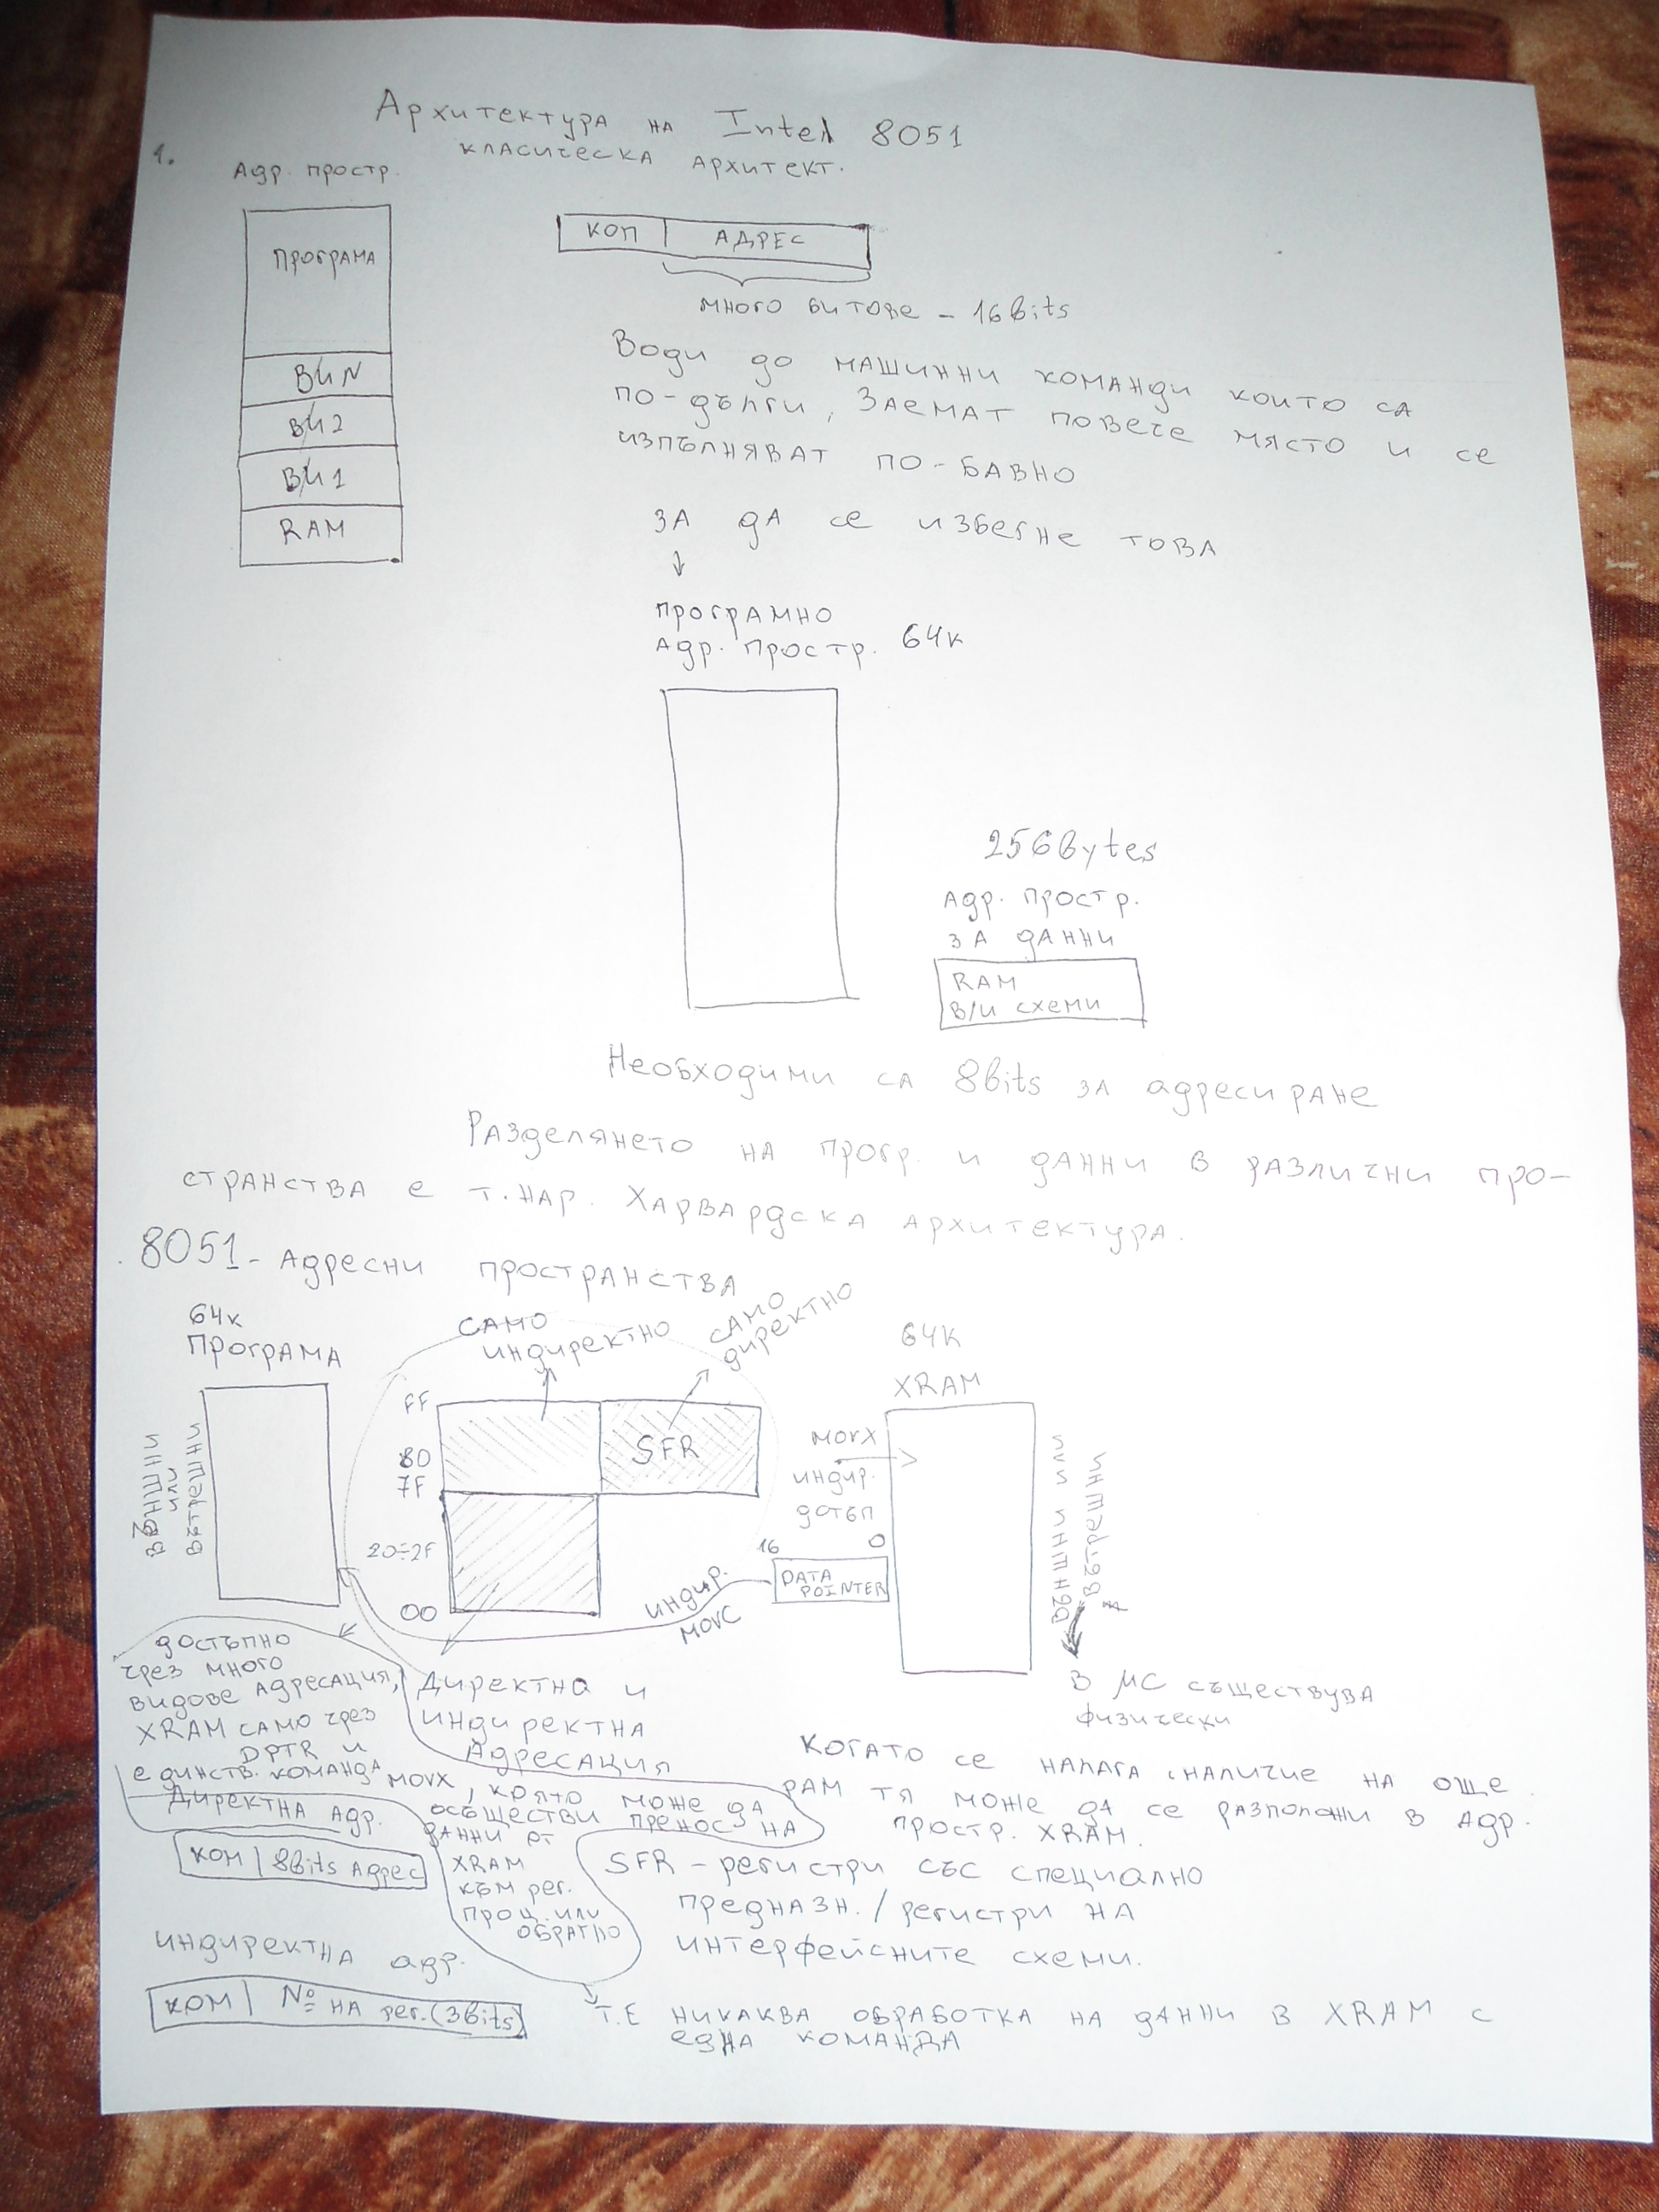 Архитектура на Intel 8051
класическа архитект.
1.
Адр. простр.
Програма
В/И N
В/И 2
В/И 1
RAM
КОП | АДРЕС
много битове – 16bits
Води до машинни команди които са
по-дълги, заемат повече място и се
изпълняват по-бавно
За да се избегне това
↓
програмно
адр. простр. 64к
256bytes
адр. простр.
за данни
RAM
В/И схеми
Необходими са 8bits за адресиране
Разделянето на прогр. и данни в различни про-
странства е т.нар. Харвардска архитектура.
8051 – Адресни пространства
64к
Програма
вътрешни
или
външни
само
индиректно
само
директно
FF
80
7F
20÷2F
00
SFR
64К
XRAM
movx
индир.
дотъп
16
0
DATA
POINTER
индир.
movc
вътрешни
или външни
В МС съществува
физически
достъпно
чрез много
видове адресация,
XRAM само чрез
DPTR и
единств. команда movx, която може да
осъществи пренос на
данни от
XRAM
към рег.
проц. или
обратно
Директна и
индиректна
адресация
Когато се налага наличие на още
РАМ тя може да се разположи в адр.
простр. XRAM.
Директна адр.
КОМ | 8bits Адрес
SFR – регистри със специално
предназн. / регистри на
интерфейсните схеми.
индиректна адр.
КОМ | № на рег. (3bits)
т.е никаква обработка на данни в XRAM с
една команда